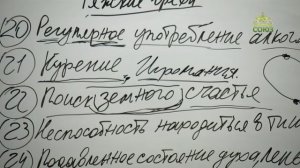 Тяжкие грехи
СОЮЗ
20 Регулярное употребление алког
21 Курение, Игромания.
22 Поиск земного счастья
23 Неспособность находиться в тиш
24 Подавленное состояние духа